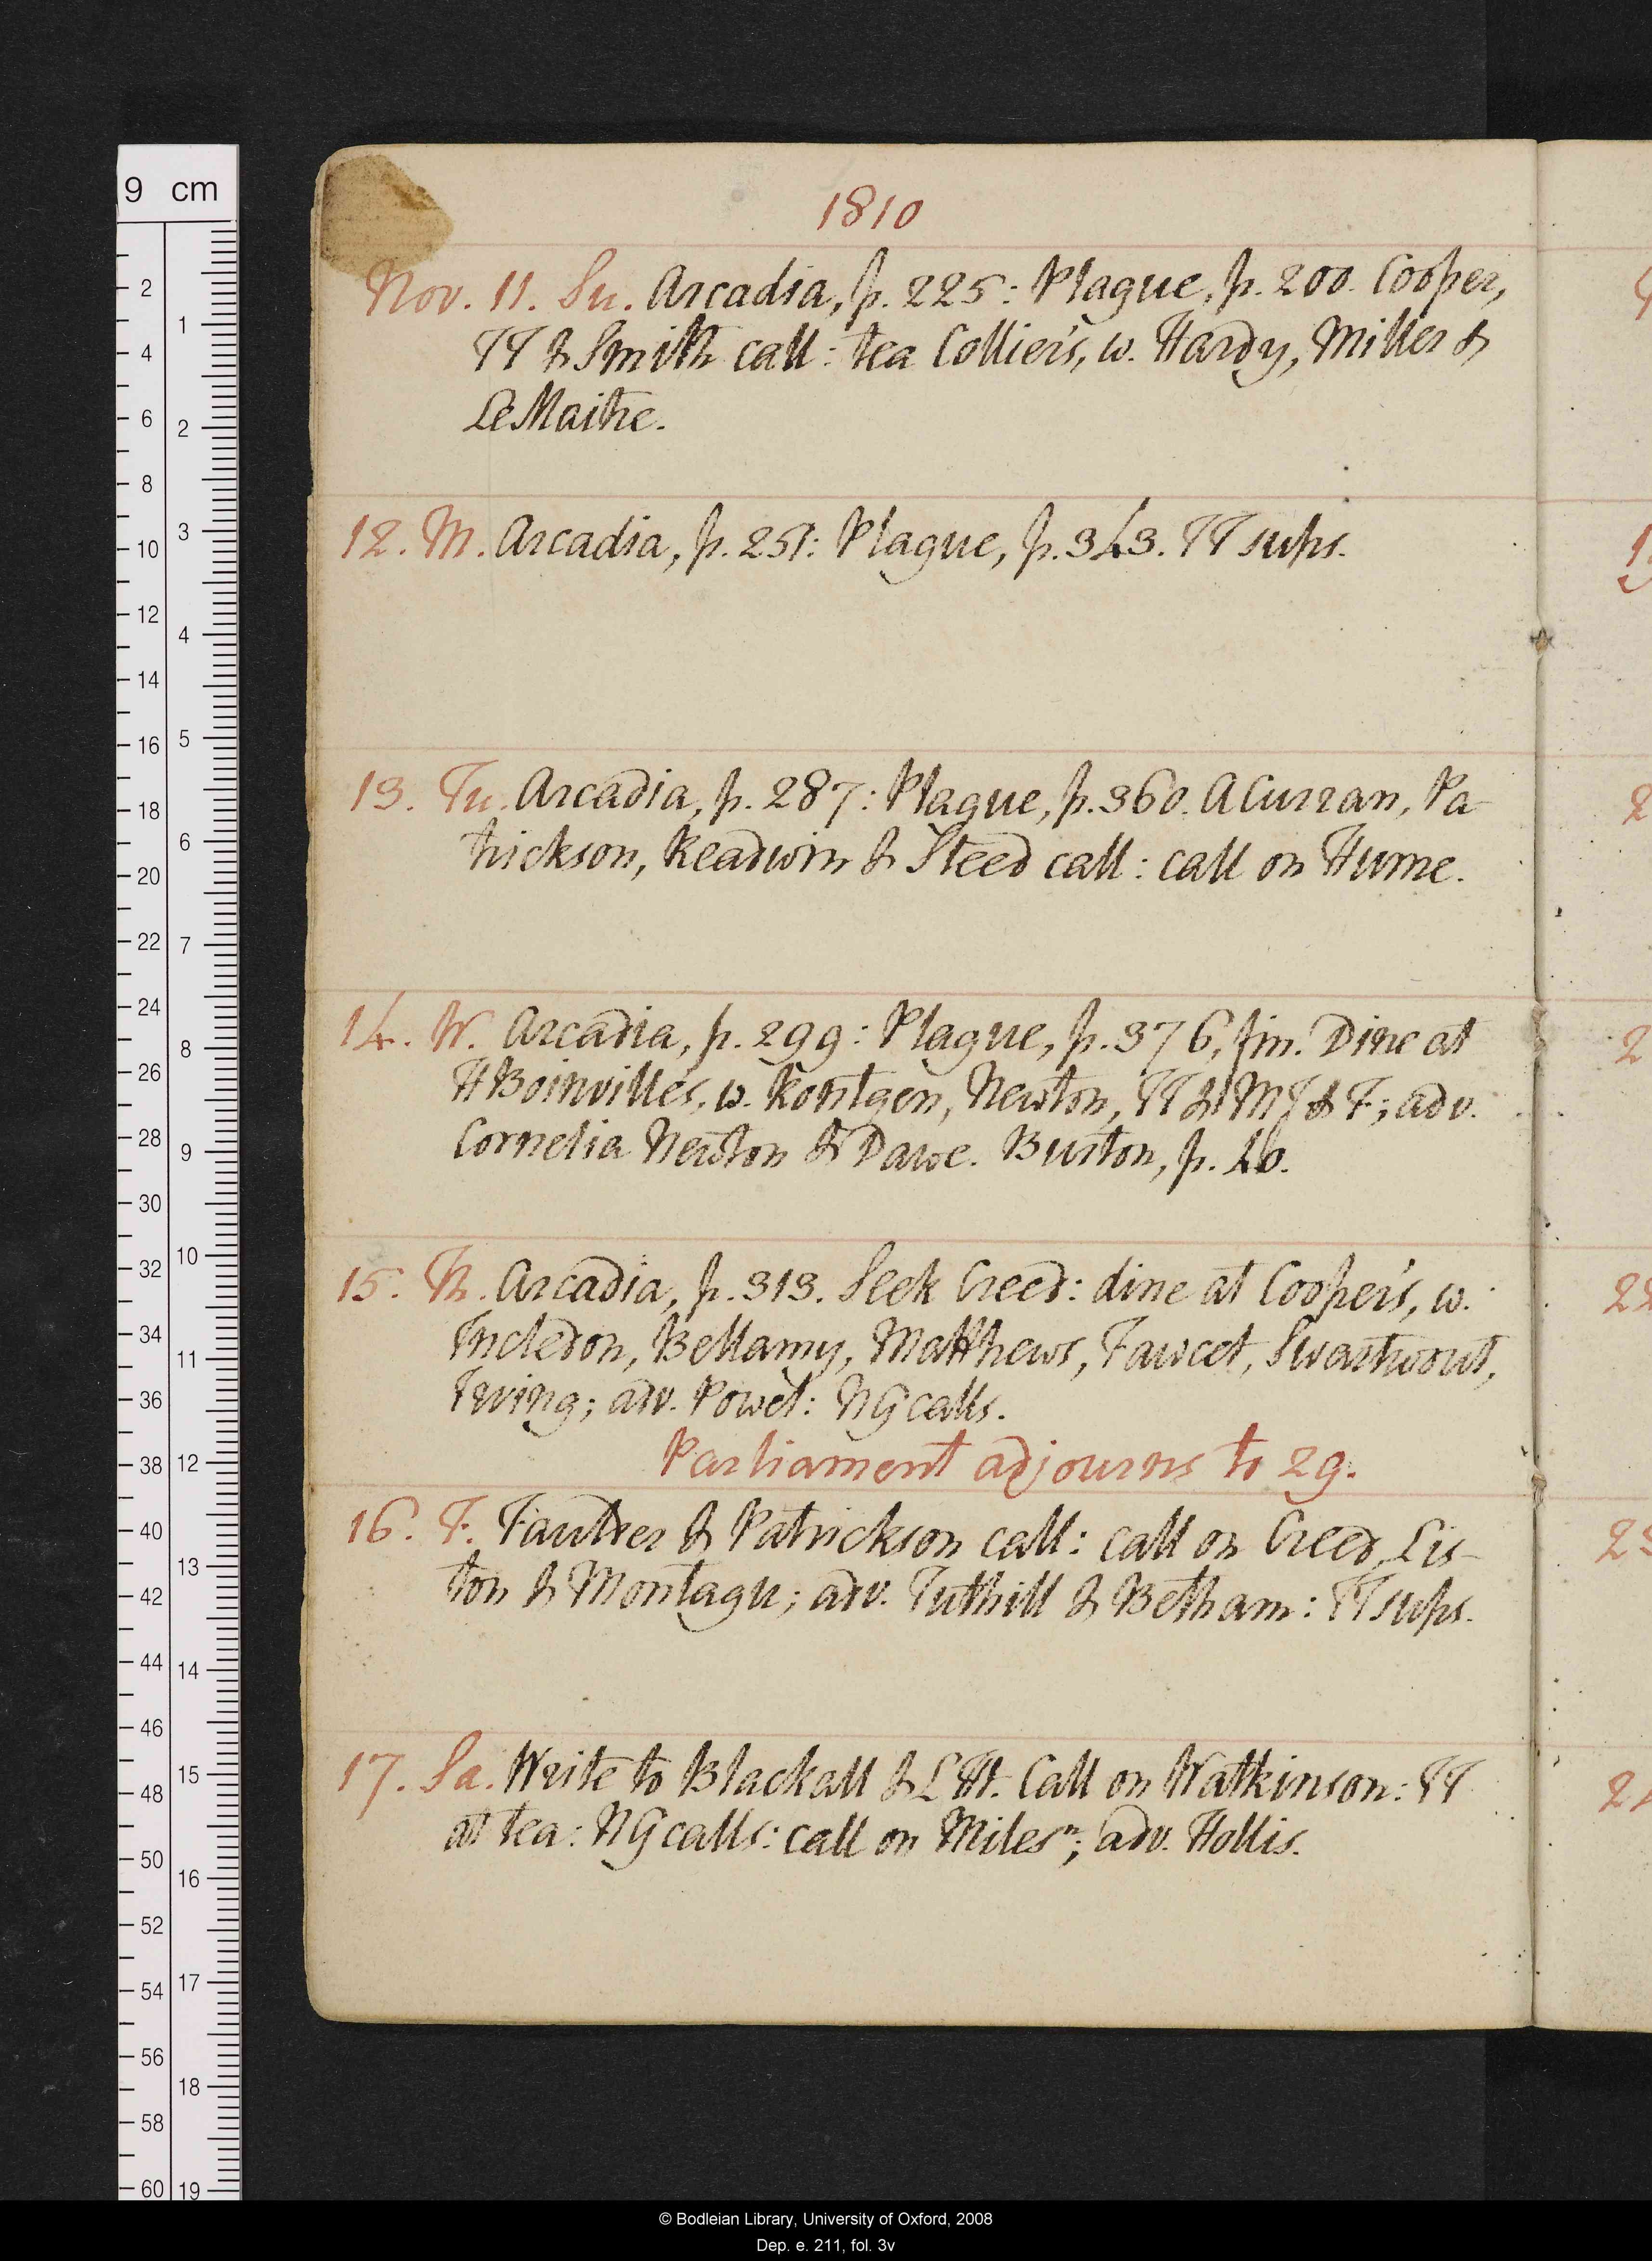 1810
Nov. 11. Su. Arcadia, p. 225: Plague, p. 200. Cooper,
TT & Smith call: tea Collier's, w. Hardy, Miller &
LeMaitre.
12. M. Arcadia, p. 251: Plague, p. 343. TT sups.
13. Tu. Arcadia, p. 287: Plague, p. 360. ACurran, Pa-
trickson, Readwin & Steed call: call on Hume.
14. W. Arcadia, p. 299: Plague, p. 376, fin. Dine at
HBoinville's, w. Rontgen, Newton, TT & MJ & F; adv.
Cornelia Newton & Dawe. Burton, p. 40.
15. Th. Arcadia, p. 313. Seek Creed: dine at Cooper's, w.
Incledon, Bellamy, Matthews, Fawcet, Swartwout,
Irving; adv. Powel: NG calls.
Parliament adjourns to 29.
16. F. Faulder & Patrickson call: call on Creed, Lis-
ton & Montagu; adv. Tuthill & Betham: TT sups.
17. Sa. Write to Blackall & Call on Watkinson: TT
at tea: NG calls: call on Milesn; adv. Hollis.
9 cm
2
4
6
8
10
12
14
16
18
20
22
24
26
28
30
32
34
36
38
40
42
44
46
48
50
52
54
56
58
60
1
2
3
4
5
6
7
8
9
10
11
12
13
14
15
16
17
18
19
© Bodleian Library, University of Oxford, 2008
Dep. e. 211, fol. 3v